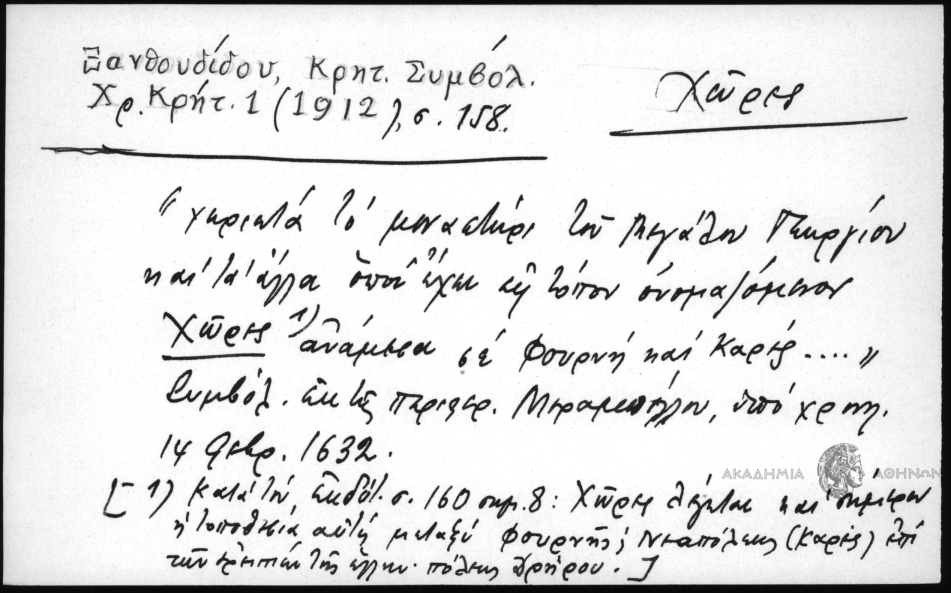 Ξανθουδίδου, Κρητ. Συμβόλ.
Χρ. Κρήτ. 1 (1912), σ. 158.
Χῶρες
"χωριστά τό μοναστήρι τοῦ Μεγάλου Γεωργίου
καί τά ἄλλα ὁποῦ ἔχει εἰς τόπον ὀνομαζόμενον
Χῶρες 1) ἀνάμεσα σέ Φουρνή καί Καρές .... "
Συμβόλ. ἐκ τῆς περιφερ. Μιραμπέλλου, ὑπό χρον.
14 Φεβρ. 1632.
ΑΚΑΔΗΜΙΑ ΑΘΗΝΩΝ
[ 1) Κατά τόν ἐκδότ. σ. 160 σημ. 8: Χῶρες λέγεται καί σήμερον
ἡ τοποθεσία αὐτή μεταξύ Φουρνῆς καί Νεαπόλεως (Καρές) ἐπί
τῶν ἐρειπίων τῆς ἑλλην. πόλεως Δρήρου. ]